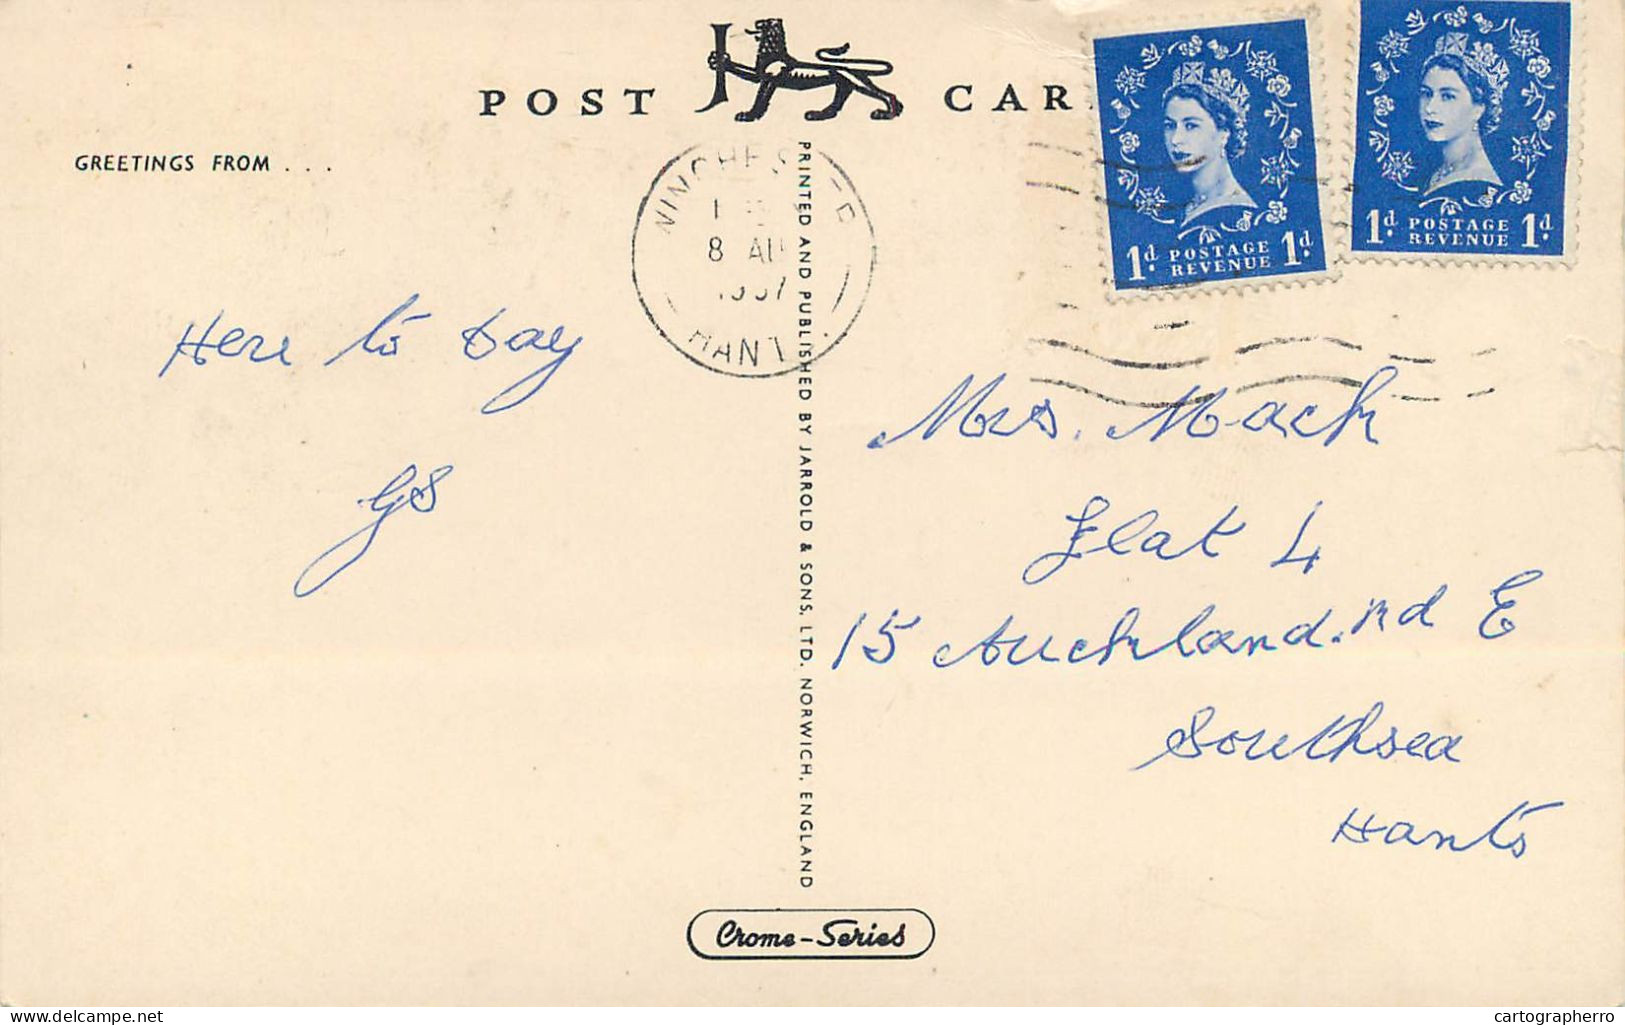 POST CAR
GREETINGS FROM . . .
WINCHESTER
8 AU
1957
HANT
1d. POSTAGE REVENUE 1d.
1d. POSTAGE REVENUE 1d.
Here to day
GS
PRINTED AND PUBLISHED BY JARROLD & SONS, LTD. NORWICH, ENGLAND
Mrs. Mack
Flat 4
15 Auckland. rd E
Southsea
Hants
Crome-Series
delcampe.net
cartographerro